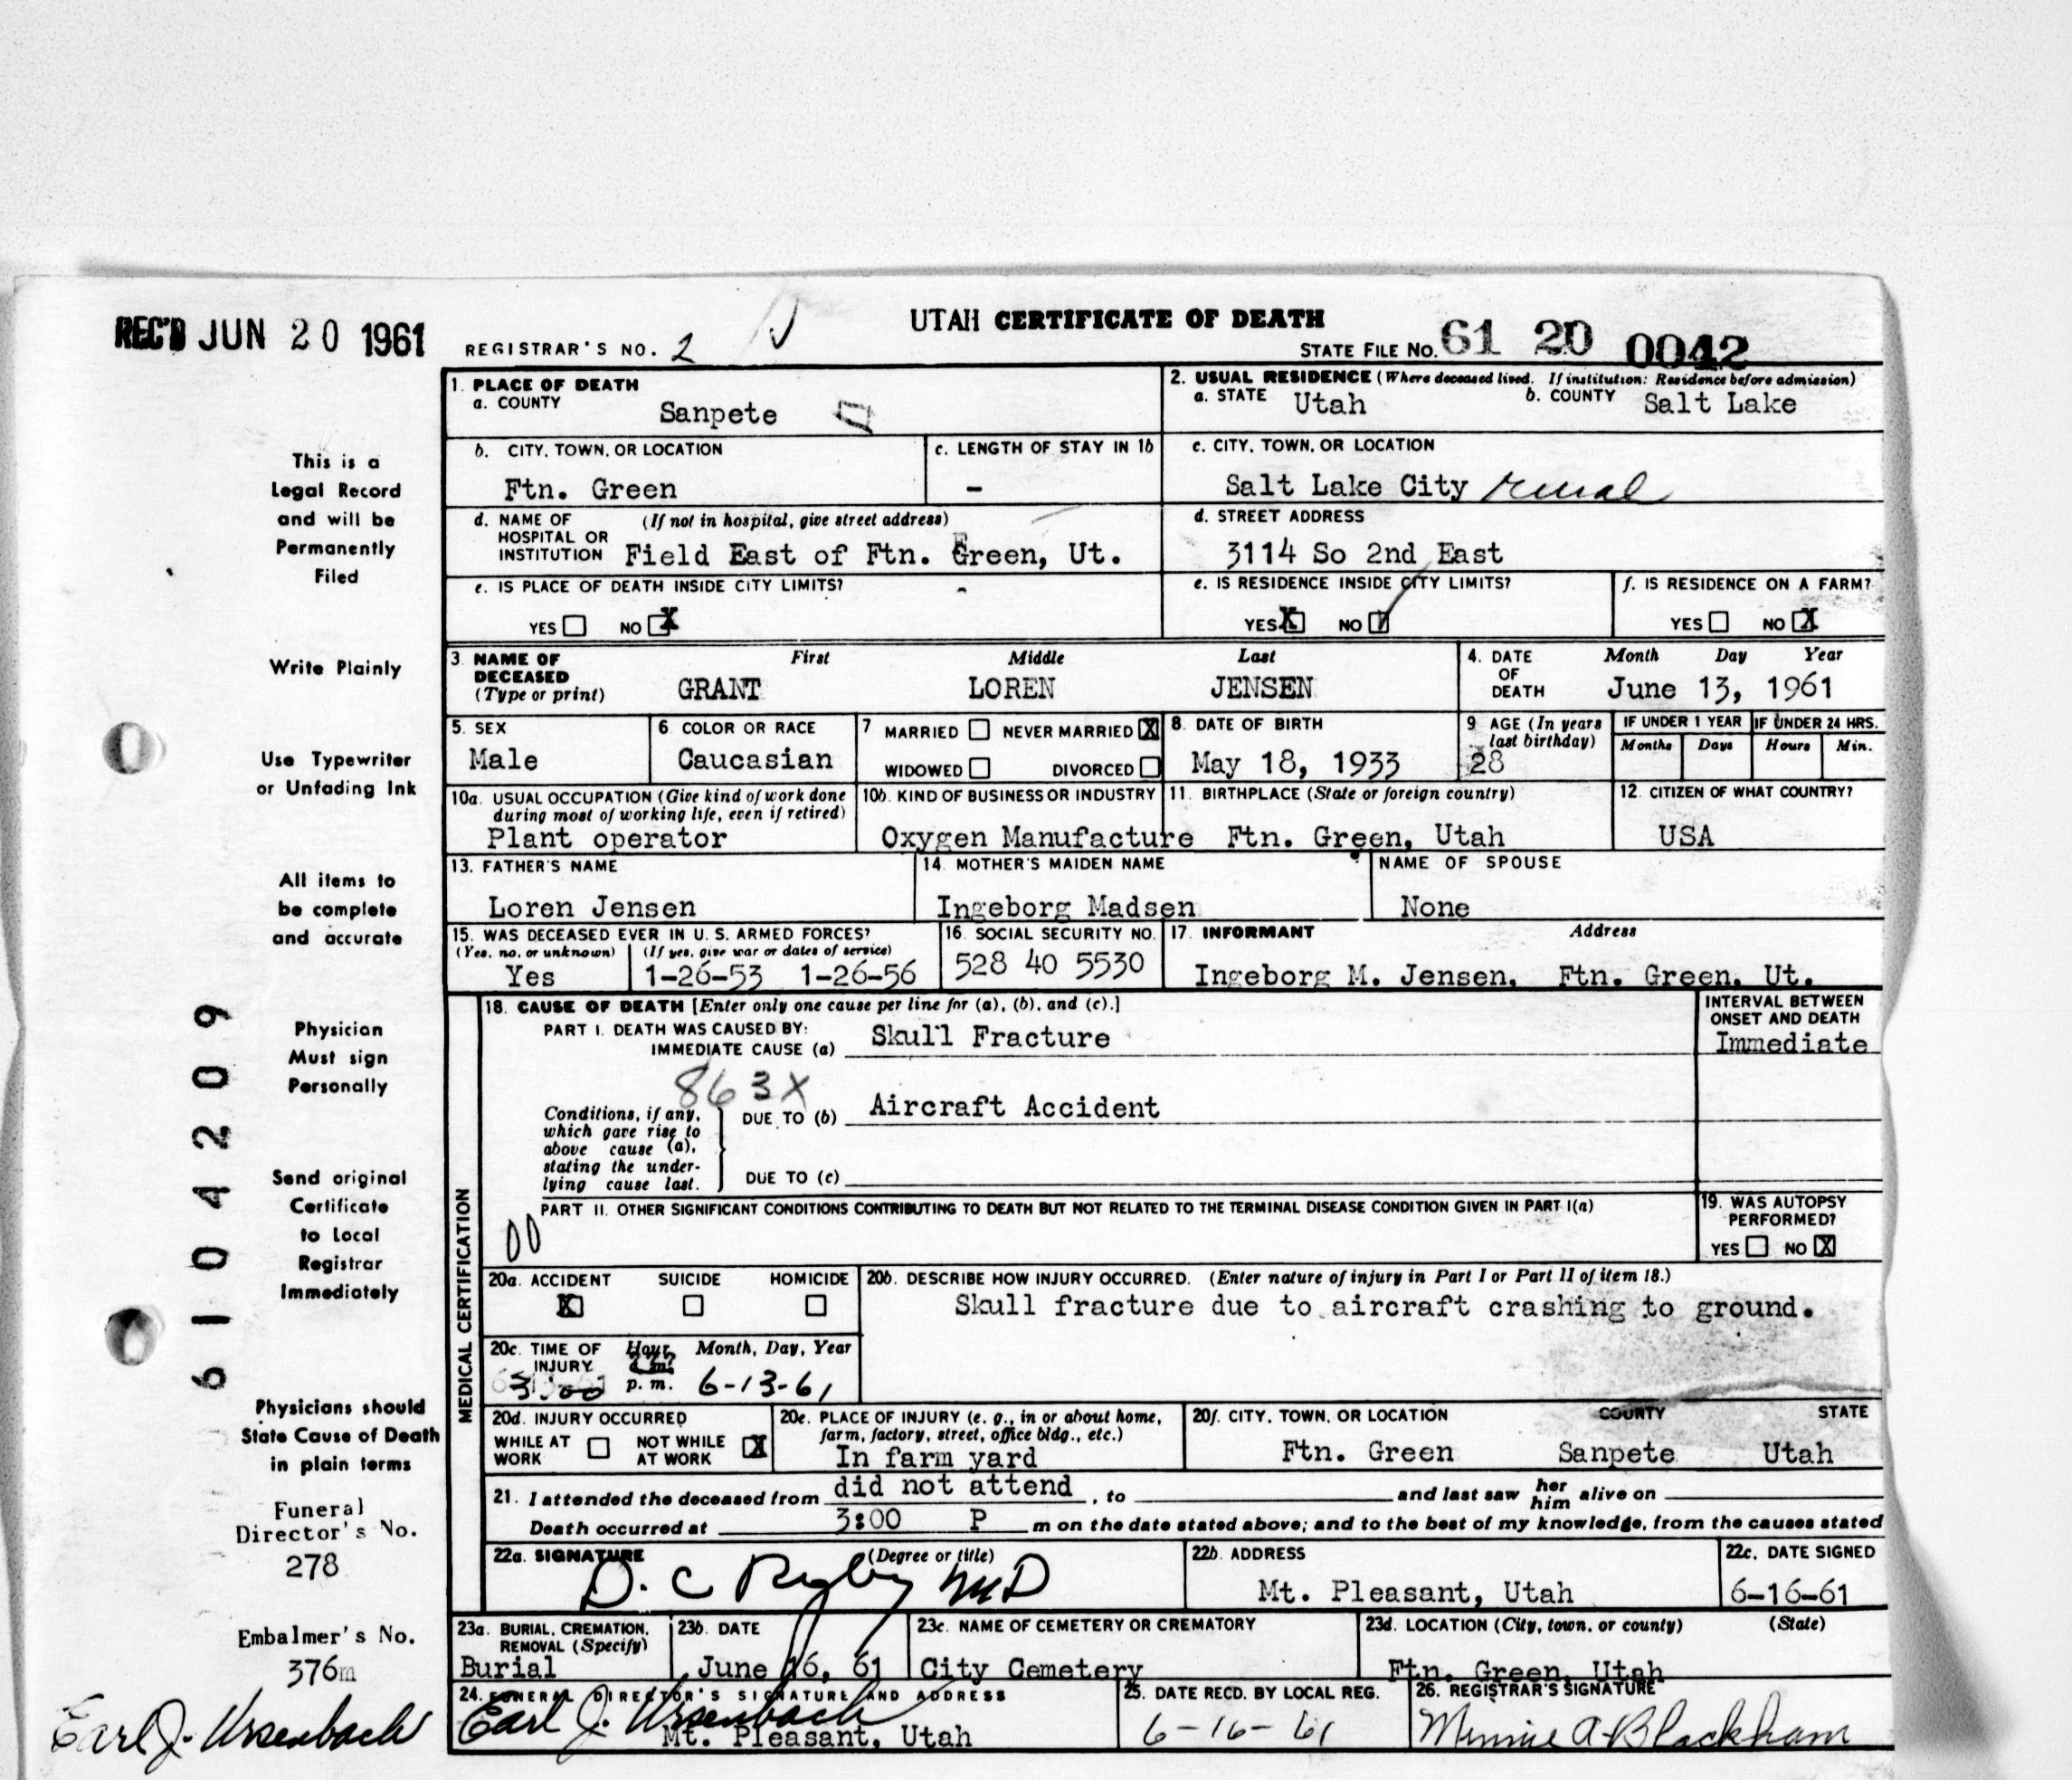 REC'D JUN 20 1961
UTAH CERTIFICATE OF DEATH
REGISTRAR'S NO. 2
STATE FILE NO. 61 20 0042
1. PLACE OF DEATH
a. COUNTY Sanpete
2. USUAL RESIDENCE (Where deceased lived. If institution: Residence before admission)
a. STATE Utah b. COUNTY Salt Lake
b. CITY, TOWN, OR LOCATION Ftn. Green
c. LENGTH OF STAY IN 1b -
c. CITY, TOWN, OR LOCATION
Salt Lake City rural
d. NAME OF HOSPITAL OR INSTITUTION (If not in hospital, give street address)
Field East of Ftn. Green, Ut.
d. STREET ADDRESS
3114 So 2nd East
e. IS PLACE OF DEATH INSIDE CITY LIMITS?
YES NO X
e. IS RESIDENCE INSIDE CITY LIMITS?
YES X NO
f. IS RESIDENCE ON A FARM?
YES NO X
3. NAME OF DECEASED (Type or print)
First Middle Last
GRANT LOREN JENSEN
4. DATE OF DEATH
Month Day Year
June 13, 1961
5. SEX
Male
6. COLOR OR RACE
Caucasian
7 MARRIED NEVER MARRIED X
WIDOWED DIVORCED
8. DATE OF BIRTH
May 18, 1933
9 AGE (In years last birthday)
28
IF UNDER 1 YEAR
Months Days
IF UNDER 24 HRS.
Hours Min.
10a. USUAL OCCUPATION (Give kind of work done during most of working life, even if retired)
Plant operator
10b. KIND OF BUSINESS OR INDUSTRY
Oxygen Manufacture
11. BIRTHPLACE (State or foreign country)
Ftn. Green, Utah
12. CITIZEN OF WHAT COUNTRY?
USA
13. FATHER'S NAME
Loren Jensen
14. MOTHER'S MAIDEN NAME
Ingeborg Madsen
NAME OF SPOUSE
None
15. WAS DECEASED EVER IN U. S. ARMED FORCES?
(Yes, no, or unknown) (If yes, give war or dates of service)
Yes 1-26-53 1-26-56
16. SOCIAL SECURITY NO.
528 40 5530
17. INFORMANT Address
Ingeborg M. Jensen, Ftn. Green, Ut.
MEDICAL CERTIFICATION
18. CAUSE OF DEATH [Enter only one cause per line for (a), (b), and (c).]
INTERVAL BETWEEN ONSET AND DEATH
PART I. DEATH WAS CAUSED BY:
IMMEDIATE CAUSE (a) Skull Fracture Immediate
863X
Conditions, if any, which gave rise to above cause (a), stating the underlying cause last.
DUE TO (b) Aircraft Accident
DUE TO (c)
PART II. OTHER SIGNIFICANT CONDITIONS CONTRIBUTING TO DEATH BUT NOT RELATED TO THE TERMINAL DISEASE CONDITION GIVEN IN PART I(a)
00
19. WAS AUTOPSY PERFORMED?
YES NO X
20a. ACCIDENT SUICIDE HOMICIDE
X
20b. DESCRIBE HOW INJURY OCCURRED. (Enter nature of injury in Part I or Part II of item 18.)
Skull fracture due to aircraft crashing to ground.
20c. TIME OF INJURY Hour Month, Day, Year
a. m.
3:00 p. m. 6-13-61
20d. INJURY OCCURRED
WHILE AT WORK NOT WHILE AT WORK X
20e. PLACE OF INJURY (e. g., in or about home, farm, factory, street, office bldg., etc.)
In farm yard
20f. CITY, TOWN, OR LOCATION COUNTY STATE
Ftn. Green Sanpete Utah
21. I attended the deceased from did not attend , to and last saw her him alive on
Death occurred at 3:00 P m on the date stated above; and to the best of my knowledge, from the causes stated
22a. SIGNATURE (Degree or title)
D. C Rigby MD
22b. ADDRESS
Mt. Pleasant, Utah
22c. DATE SIGNED
6-16-61
23a. BURIAL, CREMATION, REMOVAL (Specify)
Burial
23b. DATE
June 16, 61
23c. NAME OF CEMETERY OR CREMATORY
City Cemetery
23d. LOCATION (City, town, or county) (State)
Ftn. Green, Utah
24. FUNERAL DIRECTOR'S SIGNATURE AND ADDRESS
Earl J. Ursenbach
Mt. Pleasant, Utah
25. DATE RECD. BY LOCAL REG.
6-16-61
26. REGISTRAR'S SIGNATURE
Minnie A. Blackham
This is a
Legal Record
and will be
Permanently
Filed
Write Plainly
Use Typewriter
or Unfading Ink
All items to
be complete
and accurate
Physician
Must sign
Personally
Send original
Certificate
to Local
Registrar
Immediately
Physicians should
State Cause of Death
in plain terms
Funeral
Director's No.
278
Embalmer's No.
376m
Earl J. Ursenbach
6104209